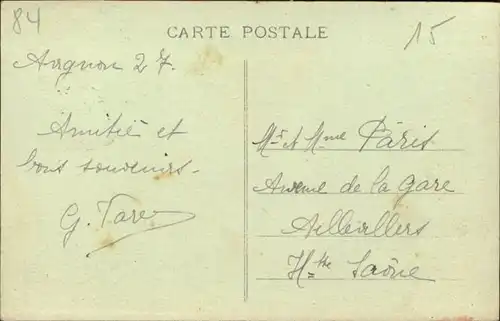 84
CARTE POSTALE
15
Avignon 27.
Amitié et
bons souvenirs.
G.
Mr & Mme Pâris
Avenue de la gare
Aillevillers
Hte Saône